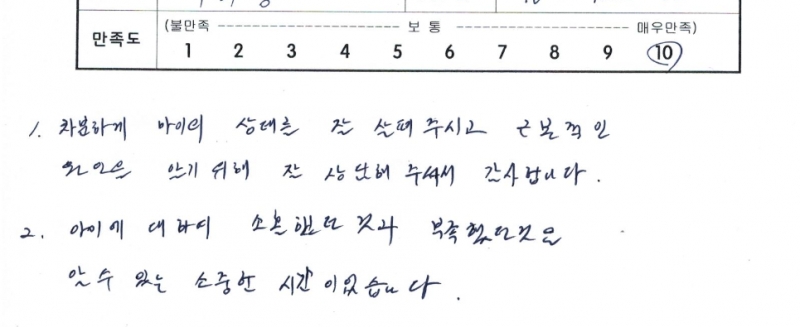 만족도 (불만족 ---------- 보 통 ---------- 매우만족)
1 2 3 4 5 6 7 8 9 10
1. 차분하게 아이의 상태를 잘 살펴 주시고 근본적인
원인을 알기 위해 잘 상담해 주셔서 감사합니다.
2. 아이에 대하여 소홀했던 것과 부족했던것을
알 수 있는 소중한 시간이었습니다.